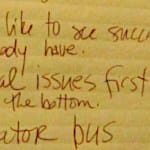 like to see succ
ady have.
al issues first
the bottom.
ator bus